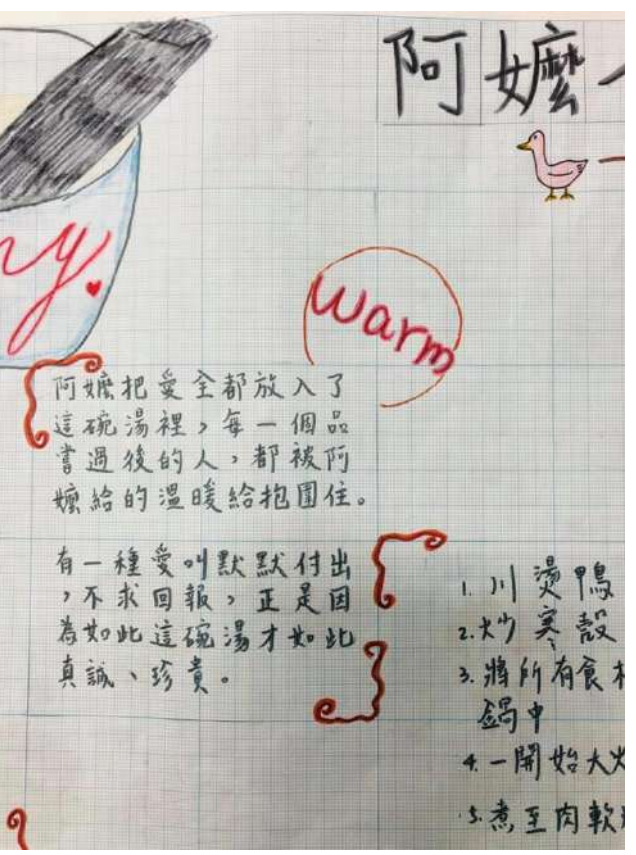 阿嬤
y.
Warm
阿嬤把愛全都放入了
這碗湯裡，每一個品
嘗過後的人，都被阿
嬤給的溫暖給抱圍住。
有一種愛叫默默付出
，不求回報，正是因
為如此這碗湯才如此
真誠、珍貴。
1. 川燙鴨
2. 炒寒殼
3. 將所有食材
鍋中
4. 一開始大火
5. 煮至肉軟